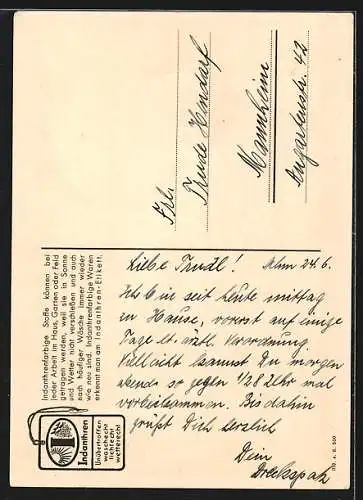 Frl.
Trude Hondorf
Mannheim
Augartenstr. 42
Indanthrenfarbige Stoffe können bei
jeder Arbeit in Haus, Garten oder Feld
getragen werden, weil sie in Sonne
und Wetter nicht verschießen und auch
nach häufiger Wäsche immer wieder
wie neu sind. Indanthrenfarbige Waren
erkennt man am Indanthren-Etikett.
Indanthren
Unübertroffen
waschecht
lichtecht
wetterecht
Liebe Trudl! Mhm 24.6.
Ich bin seit heute mittag
zu Hause, vorerst auf einige
Tage lt. ärztl. Verordnung.
Vielleicht kannst Du morgen
abend so gegen 1/28 Uhr mal
vorbeikommen. Bis dahin
grüßt Dich herzlich
Dein
Dreckspatz